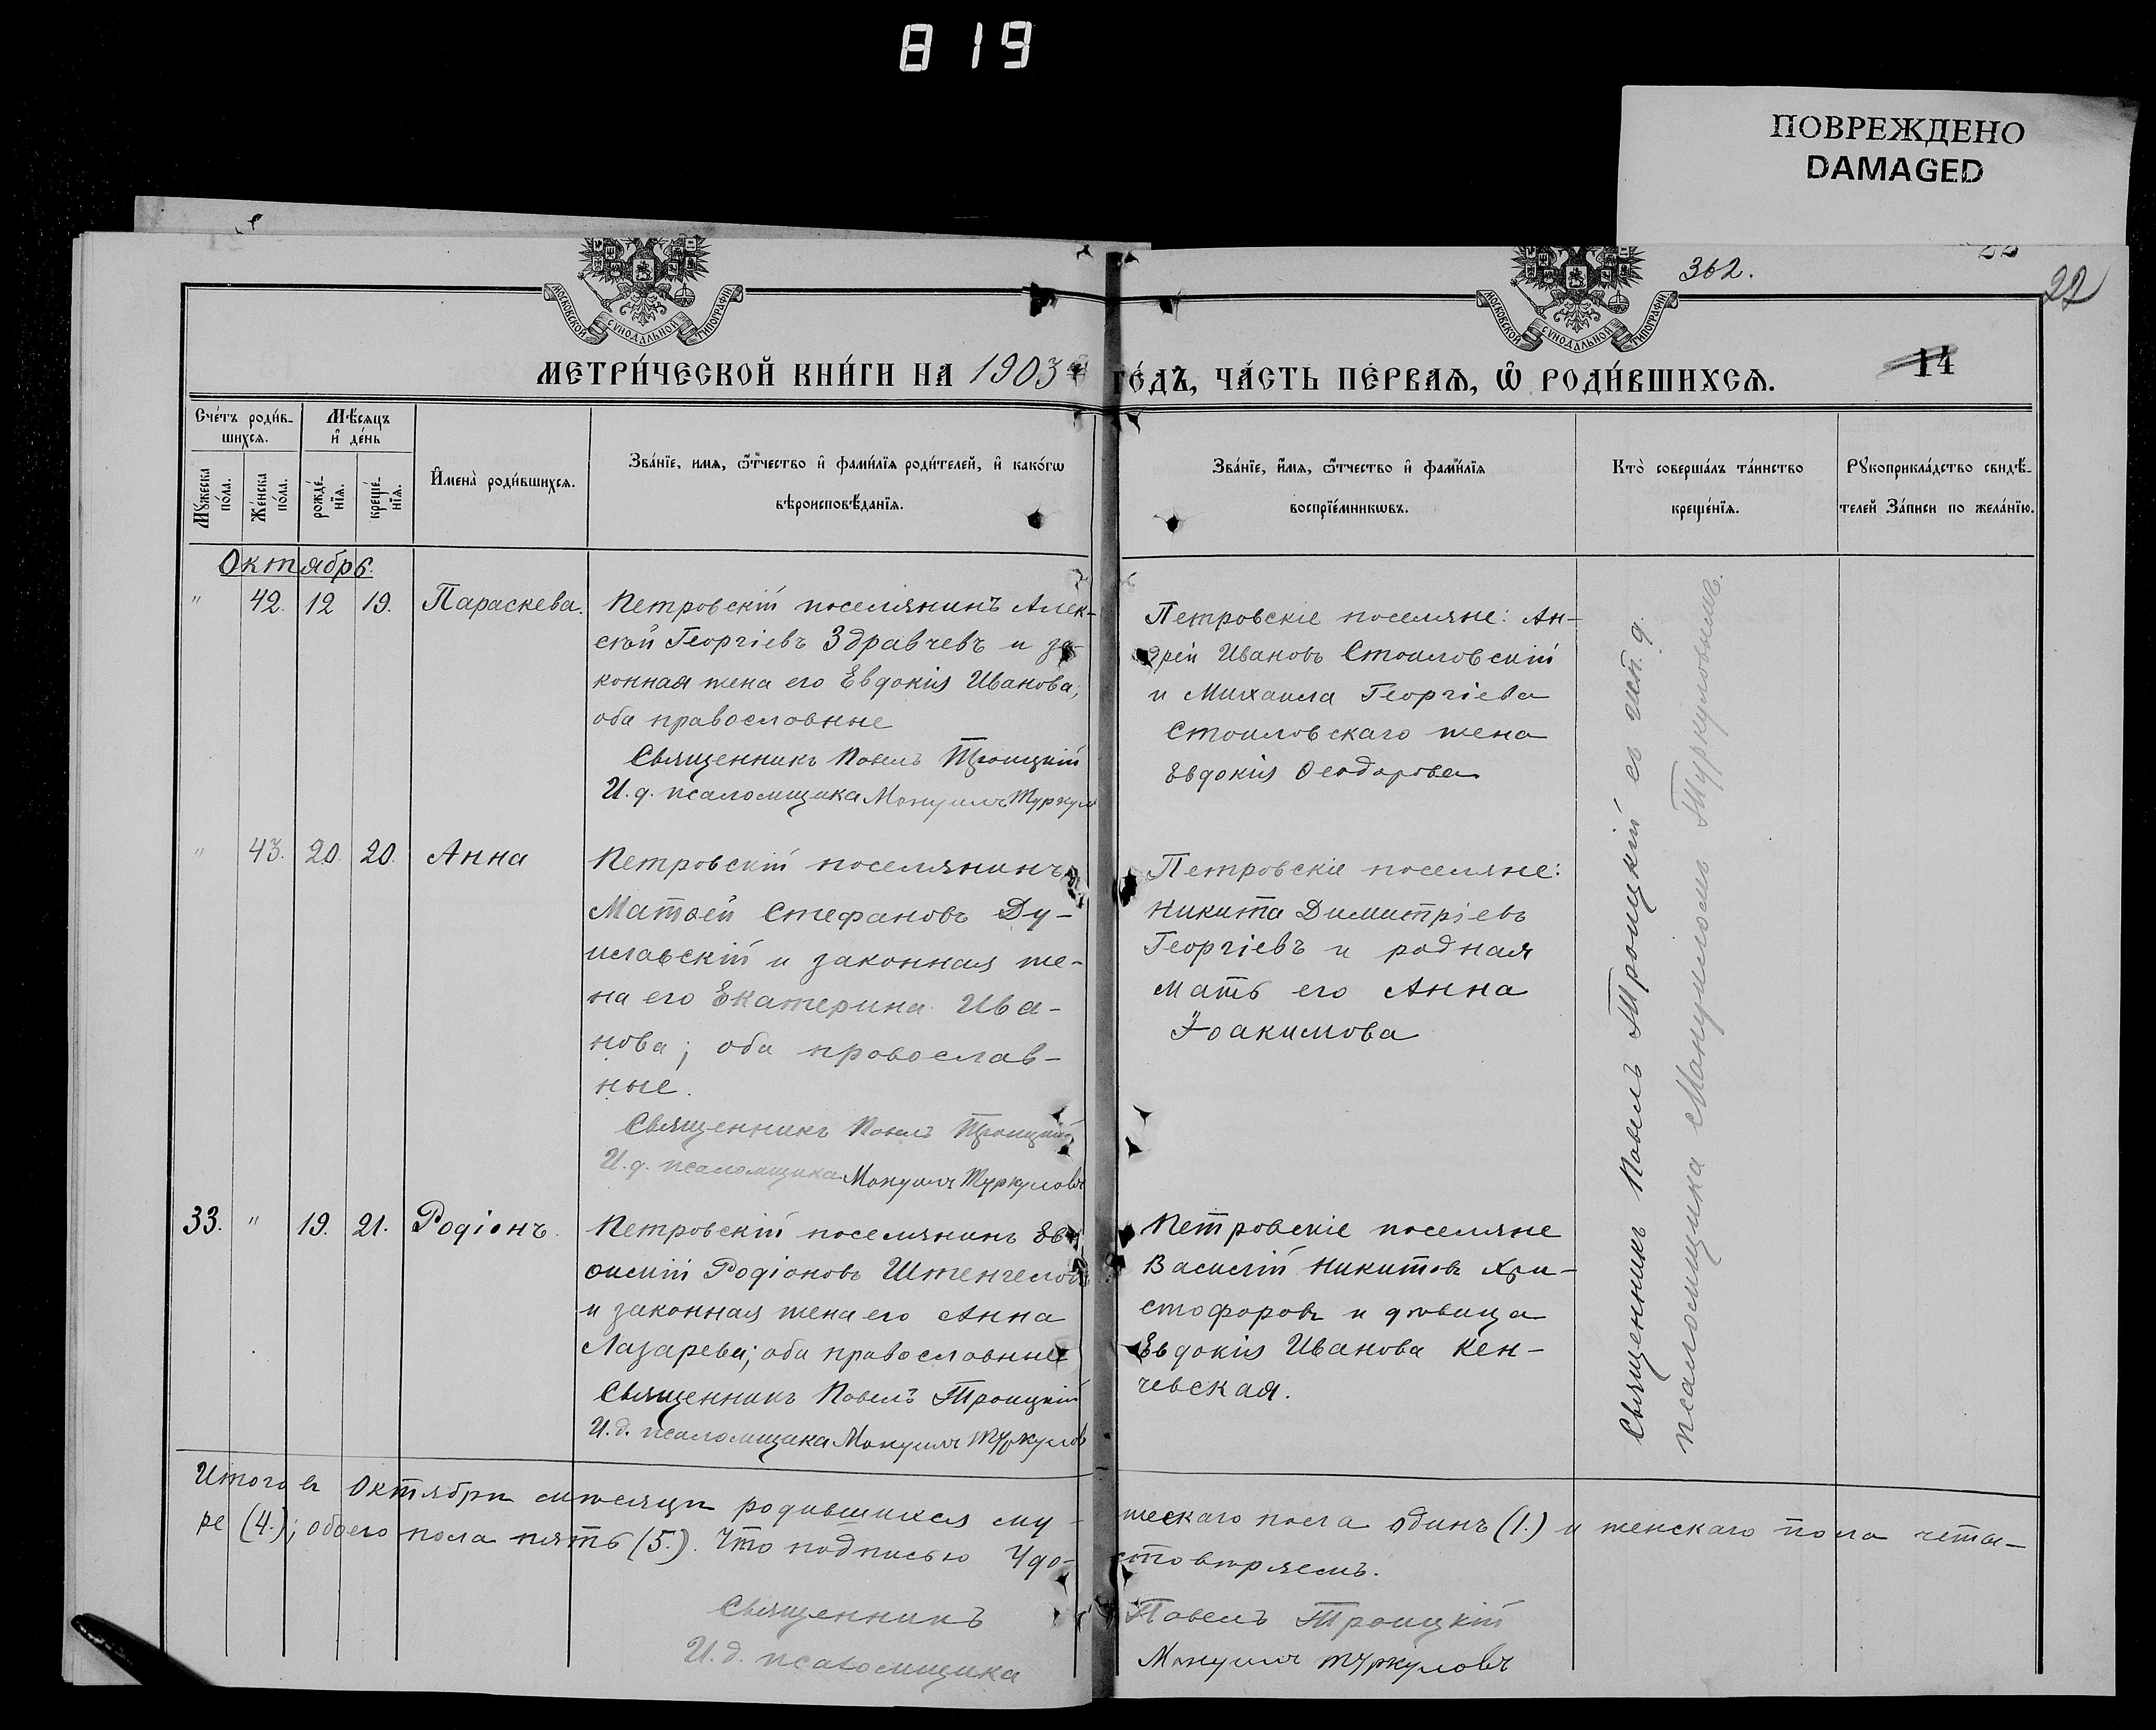 819
ПОВРЕЖДЕНО
DAMAGED
362.
22
МОСКОВСКОЙ СУНОДАЛЬНОЙ ТИПОГРАФІИ
МОСКОВСКОЙ СУНОДАЛЬНОЙ ТИПОГРАФІИ
14
МЕТРИ́ЧЕСКОЙ КНИ́ГИ НА 1903 ГО́ДЪ, ЧА́СТЬ ПЕ́РВАЯ, Ѡ РОДИ́ВШИХСЯ.
Сче́тъ роди́в-
шихся.
Мѣ́сяцъ
и де́нь
Мꙋжеска
по́ла.
Же́нска
по́ла.
рожде́-
нїя.
креще́-
нїя.
Имена̀ роди́вшихся.
Зва́нїе, имя, ѻ҆́тчество и фами́лїя роди́телей, и како́гѡ
вѣроисповѣ́данїя.
Зва́нїе, и́мя, ѻ҆́тчество и фами́лїя
воспрїе́мникѡвъ.
Кто̀ соверша́лъ та́инство
креще́нїя.
Рꙋкоприкла́дство свидѣ́-
телей За́писи по жела́нїю.
Октябрь.
" 42. 12 19. Параскева.
Петровскій поселянинъ Алек-
сѣй Георгіевъ Здравчевъ и за-
конная жена его Евдокія Иванова,
оба православные
Священникъ Павелъ Троицкій
И. д. псаломщика Мануилъ Туркул
Петровскіе поселяне: Ан-
дрей Ивановъ Стоиловскій
и Михаила Георгіева
Стоиловскаго жена
Евдокія Ѳеодорова
" 43. 20. 20. Анна
Петровскій поселянинъ
Матѳей Стефановъ Ду-
иславскій и законная же-
на его Екатерина Ива-
нова; оба православ-
ные.
Священникъ Павелъ Троицкій
И. д. псаломщика Мануилъ Туркуловъ
Петровскіе поселяне:
Никита Димитріевъ
Георгіевъ и родная
мать его Анна
Іоакимова
33. " 19. 21. Родіонъ.
Петровскій поселянинъ Ев
ѳимій Родіоновъ Штенгеловъ
и законная жена его Анна
Лазарева; оба православные
Священникъ Павелъ Троицкій
И. д. псаломщика Мануилъ Туркулов
Петровскіе поселяне
Василій Никитовъ Хри-
стофоровъ и дѣвица
Евдокія Иванова Кен-
чевская.
Священникъ Павелъ Троицкій съ исп. д.
псаломщика Мануиломъ Туркуловымъ.
Итого въ Октябрѣ мѣсяцѣ родившихся му- жескаго пола одинъ (1.) и женскаго пола четы-
ре (4.); обоего пола пять (5.). Что подписью удо- стовѣряемъ.
Священникъ Павелъ Троицкій
И. д. псаломщика Мануилъ Туркуловъ